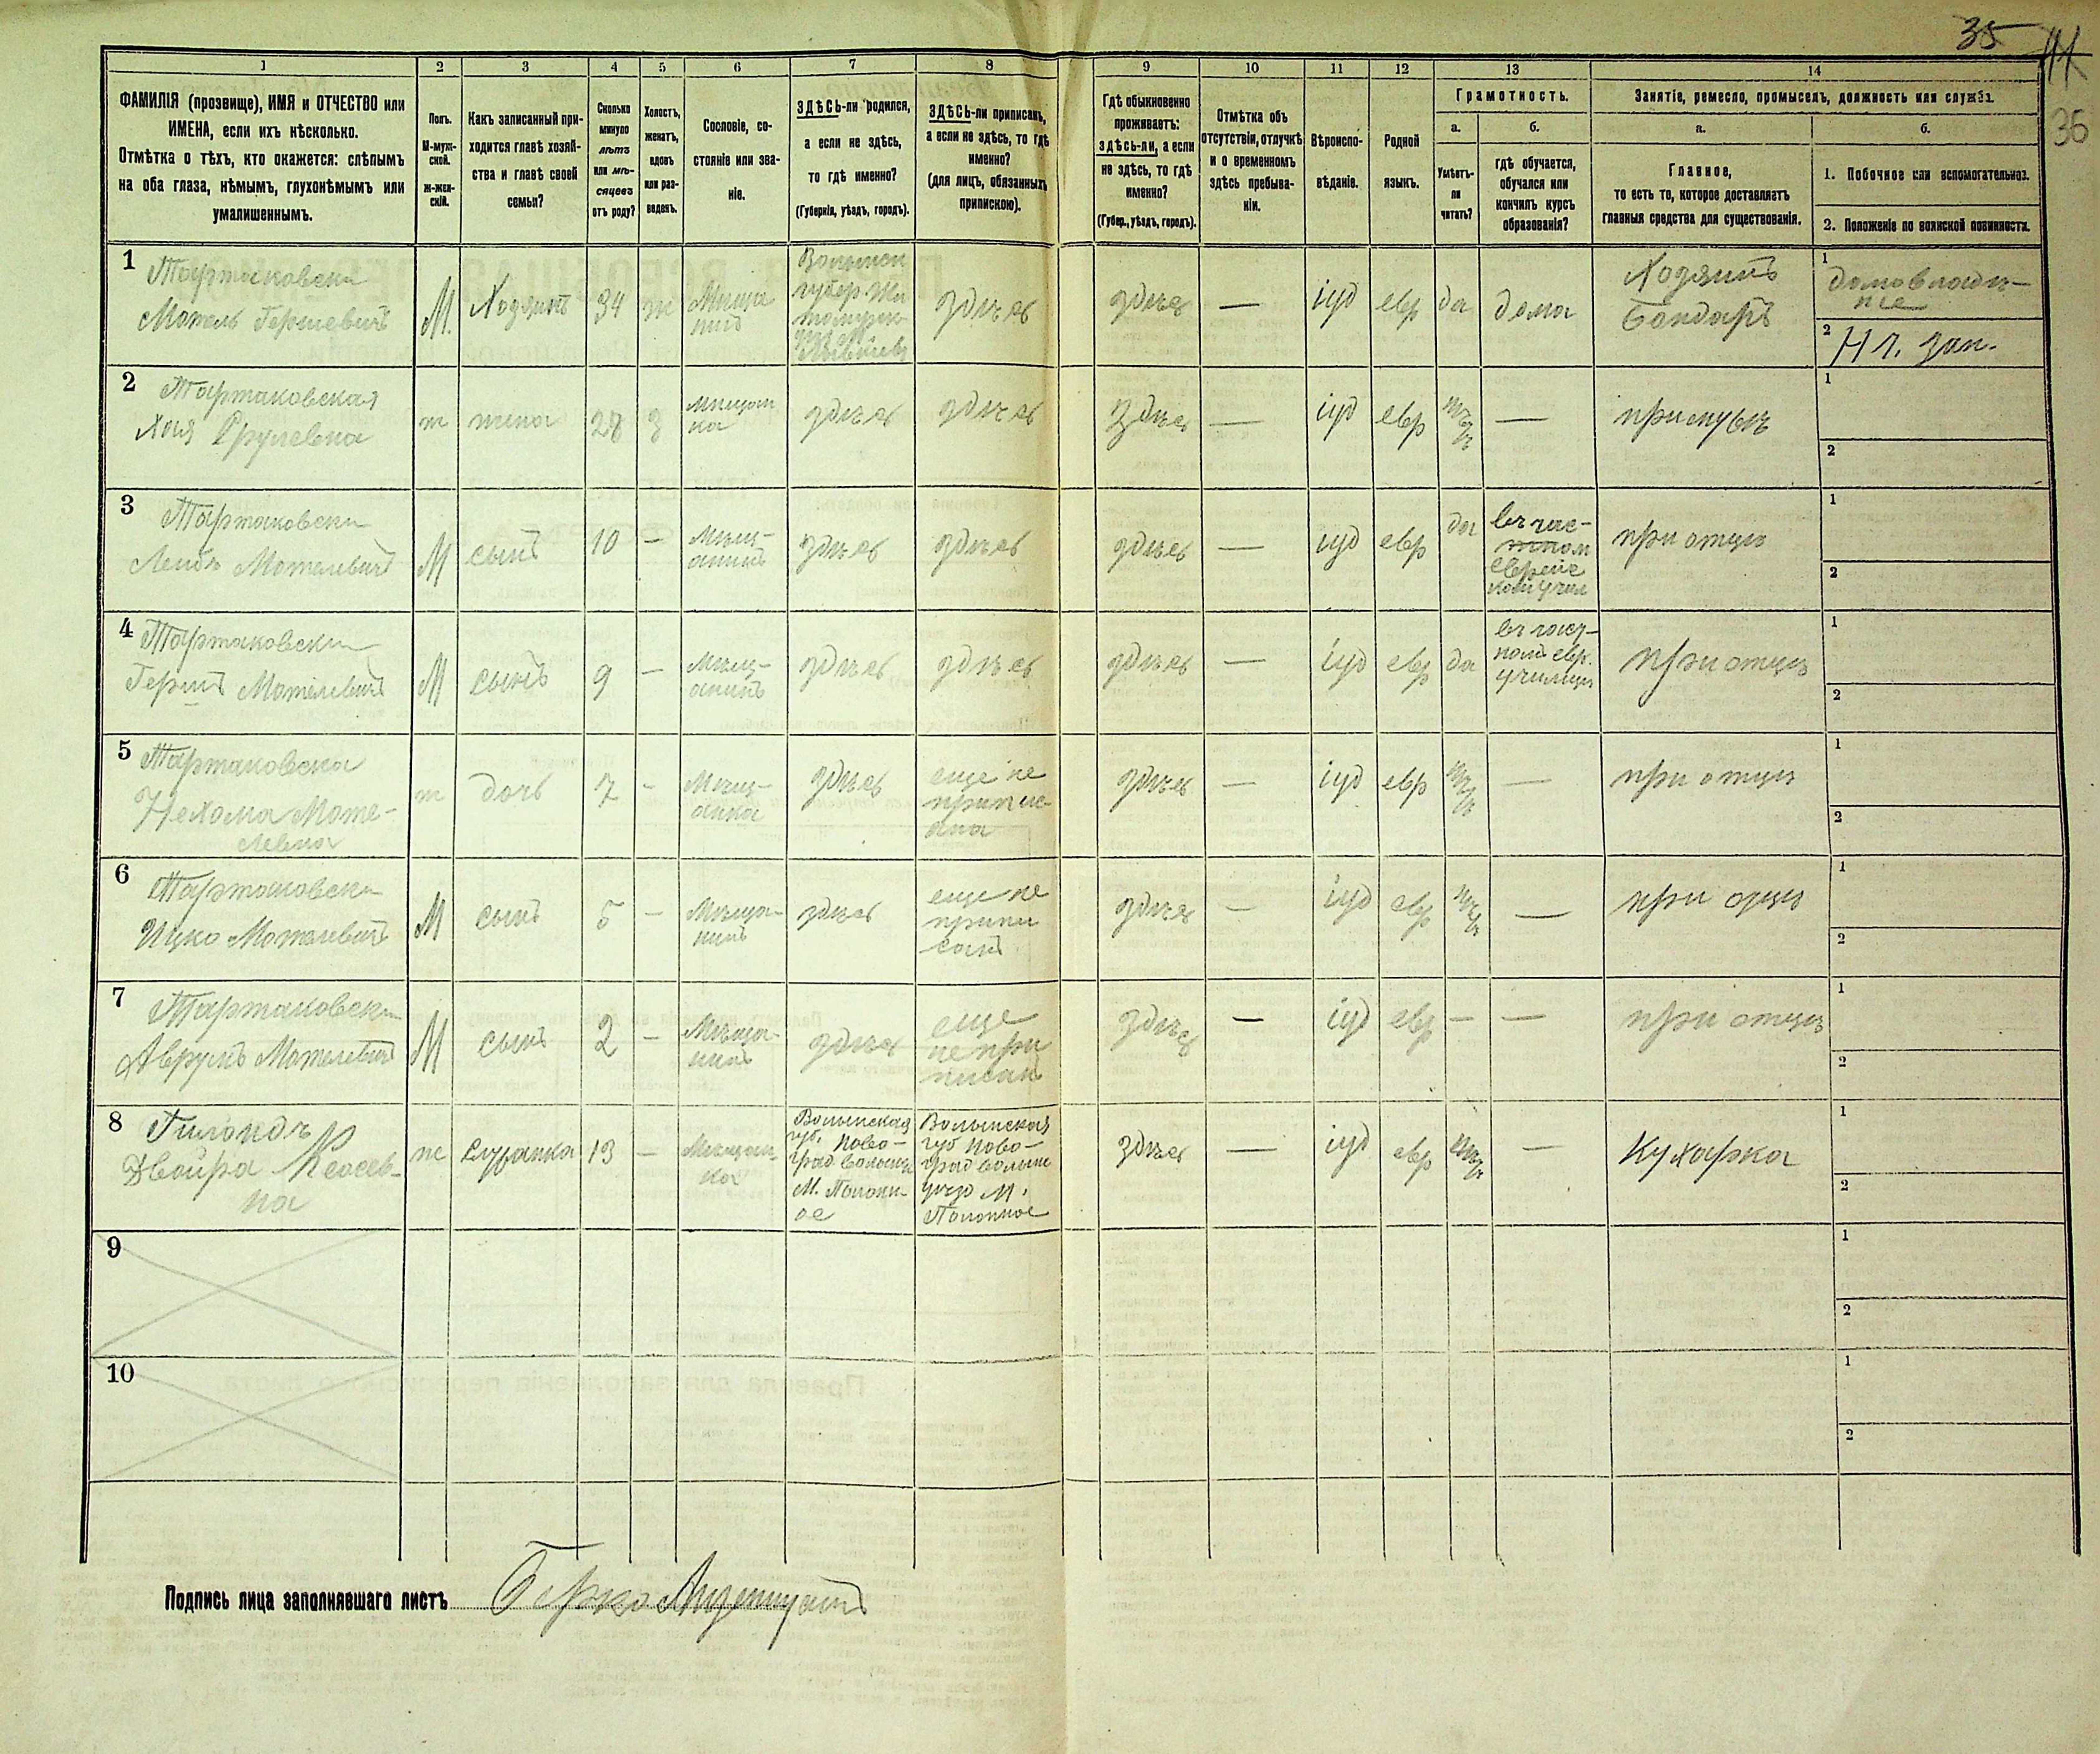 35
44
36
1
2
3
4
5
6
7
8
9
10
11
12
13
14
ФАМИЛІЯ (прозвище), ИМЯ и ОТЧЕСТВО или
ИМЕНА, если ихъ нѣсколько.
Отмѣтка о тѣхъ, кто окажется: слѣпымъ
на оба глаза, нѣмымъ, глухонѣмымъ или
умалишеннымъ.
Полъ.
М-муж-
ской.
Ж-жен-
скій.
Какъ записанный при-
ходится главѣ хозяй-
ства и главѣ своей
семьи?
Сколько
минуло
лѣтъ
или мѣ-
сяцевъ
отъ роду?
Холостъ,
женатъ,
вдовъ
или раз-
веденъ.
Сословіе, со-
стояніе или зва-
ніе.
ЗДѢСЬ-ли родился,
а если не здѣсь,
то гдѣ именно?
(Губернія, уѣздъ, городъ).
ЗДѢСЬ-ли приписанъ,
а если не здѣсь, то гдѣ
именно?
(для лицъ, обязанныхъ
припискою).
Гдѣ обыкновенно
проживаетъ:
здѣсь-ли, а если
не здѣсь, то гдѣ
именно?
(Губер., уѣздъ, городъ).
Отмѣтка объ
отсутствіи, отлучкѣ
и о временномъ
здѣсь пребыва-
ніи.
Вѣроиспо-
вѣданіе.
Родной
языкъ.
Грамотность.
а.
б.
Умѣетъ-
ли
читать?
гдѣ обучается,
обучался или
кончилъ курсъ
образованія?
Занятіе, ремесло, промыселъ, должность или служба.
а.
б.
Главное,
то есть то, которое доставляетъ
главныя средства для существованія.
1. Побочное или вспомогательное.
2. Положеніе по воинской повинности.
1
Тартаковски
Мотель Гершевичъ
М.
Хозяинъ
34
ж
Мѣща
нинъ
Волынск
губер Жи
томирск
здѣсь
здѣсь
—
іуд
евр
да
дома
Хозяинъ
Бондаръ
1
домовладѣ-
ніе
2
Нл. зап.
2
Тартаковская
Хая Срулевна
ж
жена
28
з
мѣщан
ка
здѣсь
здѣсь
здѣсь
—
іуд
евр
нѣтъ
—
при мужѣ
1
2
3
Тартаковски
Лейбъ Мотелевичъ
М
сынъ
10
—
Мѣщ-
анинъ
здѣсь
здѣсь
здѣсь
—
іуд
евр
да
въ час-
тном
еврейс
комъ учил
при отцѣ
1
2
4
Тартаковски
Гершъ Мотелевичъ
М
сынъ
9
—
Мѣщ-
анинъ
здѣсь
здѣсь
здѣсь
—
іуд
евр
да
въ част-
номъ евр.
училищ
при отцѣ
1
2
5
Тартаковска
Нехома Моте-
левна
ж
дочь
7
-
Мѣщ-
анка
здѣсь
еще не
припис-
ана
здѣсь
—
іуд
евр
нѣтъ
—
при отцѣ
1
2
6
Тартаковски
Ицко Мотелевичъ
М
сынъ
5
—
Мѣща-
нинъ
здѣсь
еще не
припи
санъ
здѣсь
—
іуд
евр
нѣтъ
—
при отцѣ
1
2
7
Тартаковски
Аврумъ Мотелевичъ
М
сынъ
2
—
Мѣща-
нинъ
здѣсь
еще
не при
писанъ
здѣсь
—
іуд
евр
—
—
при отцѣ
1
2
8
Двойра
на
ж
служанка
13
—
Мѣщан-
ка
Волынская
губ. Ново-
град Волынс
М. Полонн-
ое
Волынская
губ Ново-
град волынс
уѣзд М.
Полонное
здѣсь
—
іуд
евр
нѣтъ
—
Кухарка
1
2
9
1
2
10
1
2
Подпись лица заполнявшаго листъ Берко